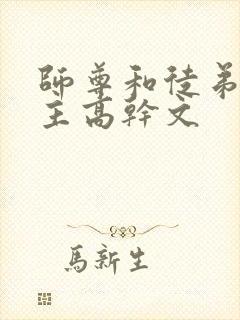 師尊和徒弟
主高幹文
馬新生